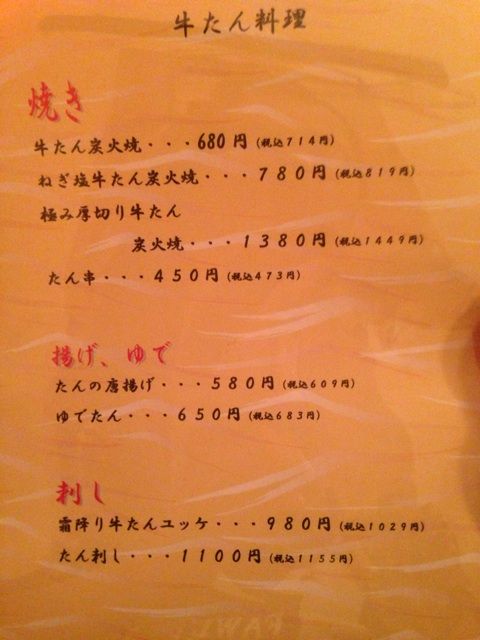 牛たん料理
焼き
牛たん炭火焼・・・680円(税込714円)
ねぎ塩牛たん炭火焼・・・780円(税込819円)
極み厚切り牛たん
炭火焼・・・1380円(税込1449円)
たん串・・・450円(税込473円)
揚げ、ゆで
たんの唐揚げ・・・580円(税込609円)
ゆでたん・・・650円(税込683円)
刺し
霜降り牛たんユッケ・・・980円(税込1029円)
たん刺し・・・1100円(税込1155円)